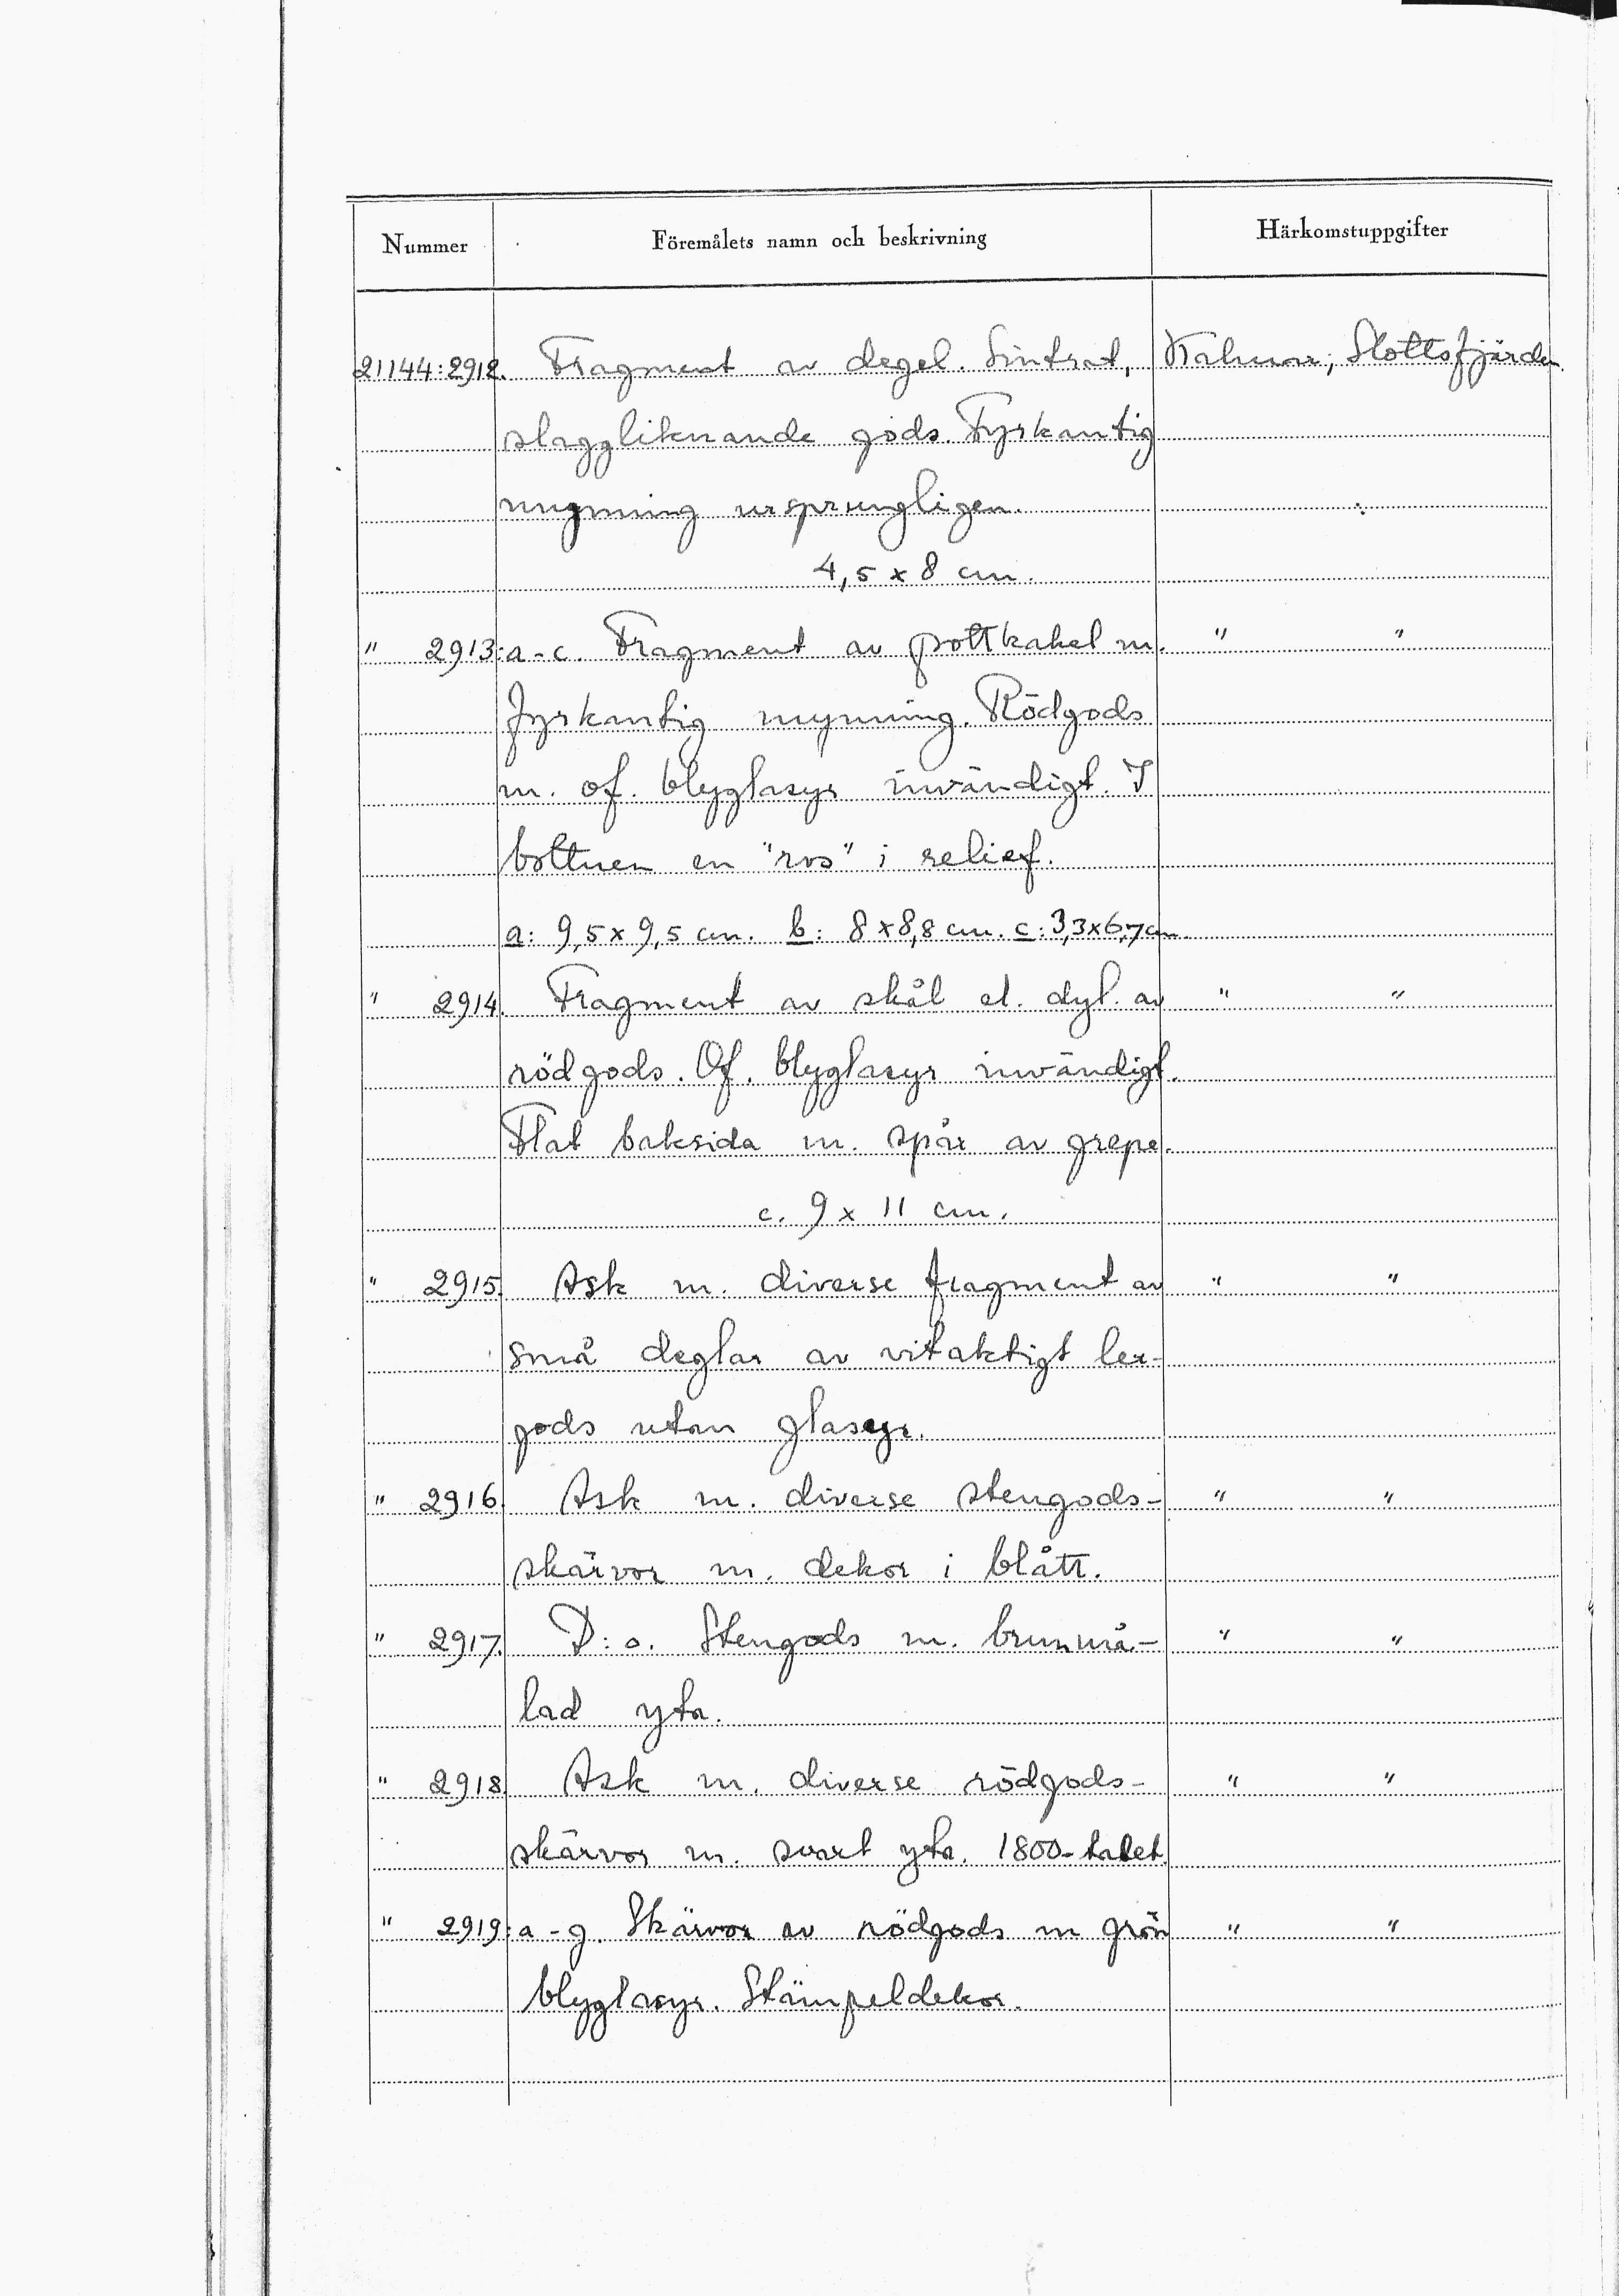 Nummer Föremålets namn och beskrivning Härkomstuppgifter
21144:2912. Fragment av degel. Sintrat, Kalmar, Slottsfjärden.
slaggliknande gods. Fyrkantig
mynning ursprungligen.
4,5 x 8 cm.
" 2913:a-c. Fragment av pottkakel m. " "
fyrkantig mynning. Rödgods
m. of. blyglasyr invändigt. I
bottnen en "ros" i relief.
a: 9,5 x 9,5 cm. b: 8 x 8,8 cm. c: 3,3 x 6,7 cm.
" 2914. Fragment av skål el. dyl. av " "
rödgods. Of. blyglasyr invändigt.
Flat baksida m. spår av grepe.
c. 9 x 11 cm.
" 2915. Ask m. diverse fragment av " "
små deglar av vitaktigt ler-
gods utan glasyr.
" 2916. Ask m. diverse stengods- " "
skärvor m. dekor i blått.
" 2917. D:o. Stengods m. brunmå- " "
lad yta.
" 2918. Ask m. diverse rödgods- " "
skärvor m. svart yta. 1800-talet.
" 2919:a-g. Skärvor av rödgods m grön " "
blyglasyr. Stämpeldekor.